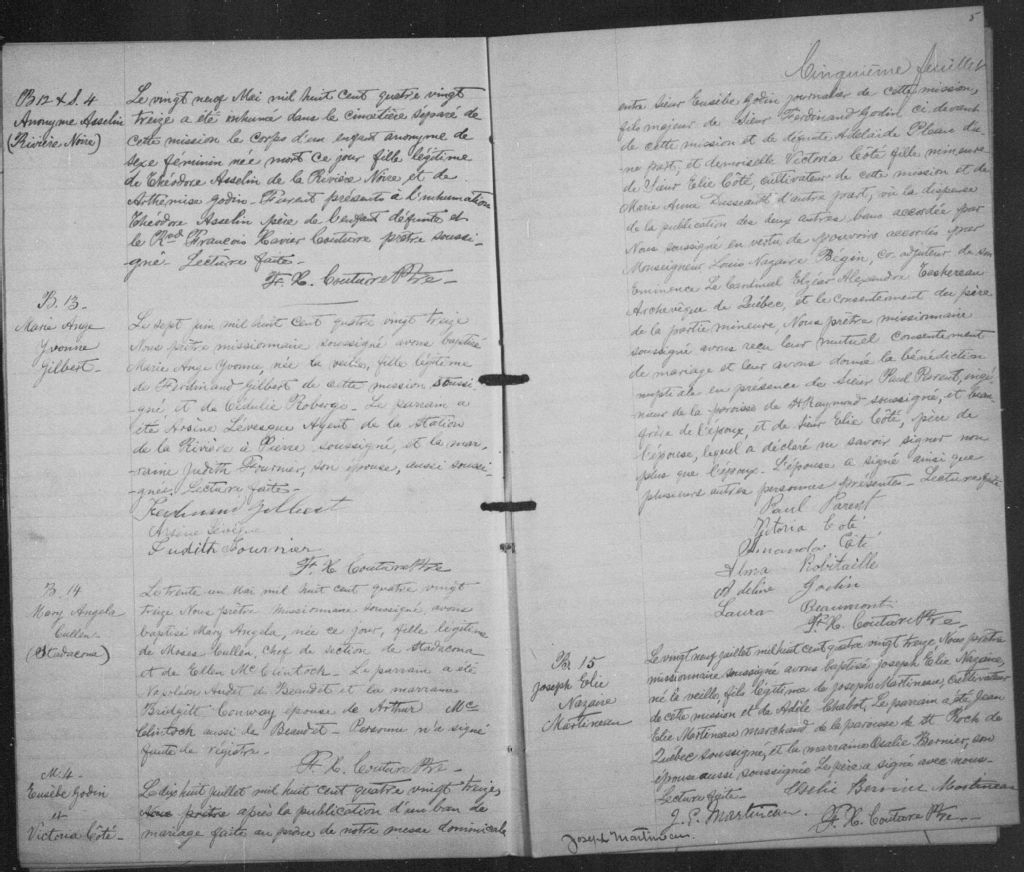 B 12 & S. 4
Anonyme Asselin
(Rivière Noire)
Le vingt neuf Mai mil huit cent quatre vingt
treize a été inhumé dans le cimetière séparé de
cette mission le corps d'un enfant anonyme de
sexe feminin née mort ce jour fille légitime
de Théodore Asselin de la Rivière Noire et de
Arthémise Godin. Furent présents à l'inhumation
Théodore Asselin père de l'enfant défunte et
le Rvd François Xavier Couture prêtre soussi-
gné Lecture faite-
F. X. Couture Ptre-
B. 13-
Marie Ange
Yvonne
Gilbert-
Le sept juin mil huit cent quatre vingt treize
Nous prêtre missionnaire soussigné avons baptisé
Marie Ange Yvonne, née la veille, fille légitime
de Ferdinand Gilbert de cette mission soussi-
gné, et de Cédulie Roberge- Le parrain a
été Arsène Lévesque Agent de la Station
de la Rivière à Pierre soussigné, et la mar-
raine Judith Fournier, son épouse, aussi soussi-
-gnée. Lecture faite-
Ferdinand Gilbert
Arsène Lévêque
Judith Fournier
F. X. Couture Ptre
B. 14
Mary Angela
Cullen-
(Stadacona)
Le trente un Mai mil huit cent quatre vingt
treize Nous prêtre missionnaire soussigné, avons
baptisé Mary Angela, née ce jour, fille légitime
de Moses Cullen, chef de section de Stadacona
et de Ellen Mc Clintock- Le parrain a été
Napoléon Audet de Beaudet et la marraine
Bridgitt Conway épouse de Arthur Mc
Clintock aussi de Beaudet- Personne n'a signé
faute de registre-
F. X. Couture Ptre-
M. 4-
Eusèbe Godin
et
Victoria Côté-
Le dix huit juillet mil huit cent quatre vingt treize,
Nous prêtre après la publication d'un ban de
mariage faite au prône de notre messe dominicale
5
Cinquième feuillet
entre Sieur Eusèbe Godin journalier de cette mission,
fils majeur de Sieur Ferdinand Godin ci devant
de cette mission et de défunte Adelaide Plante d'u-
ne part, et demoiselle Victoria Côté fille mineure
de Sieur Elie Côté, cultivateur de cette mission et de
Marie Anne Dusseault d'autre part, vu la dispense
de la publication des deux autres bans accordée par
Nous soussigné en vertu de pouvoirs accordés par
Monseigneur Louis Nazaire Bégin, co-adjuteur de son
Eminence Le Cardinal Elzéar Alexandre Taschereau
Archevêque de Québec, et le consentement du père
de la partie mineure, Nous prêtre missionnaire
soussigné avons reçu leur mutuel consentement
de mariage et leur avons donné la bénédiction
nuptiale en présence de Sieur Paul Parent, ingé-
nieur de la paroisse de St Raymond soussigné, et beau-
frère de l'époux, et de Sieur Elie Côté, père de
l'épouse, lequel a déclaré ne savoir signer non
plus que l'époux- L'épouse a signé ainsi que
plusieurs autres personnes présentes- Lecture faite
Paul Parent
Vitoria Coté
Amanda Côté
Alma Robitaille
Adeline Godin
Laura Beaumont
F. X. Couture Ptre-
B. 15
Joseph Elie
Nazaire
Martineau
Le vingt neuf juillet mil huit cent quatre vingt treize, Nous prêtre
missionnaire soussigné avons baptisé Joseph Elie Nazaire,
né la veille, fils légitime de Joseph Martineau, cultivateur
de cette mission et de Adèle Chabot, Le parrain a été Jean
Elie Martineau marchand de la paroisse de St Roch de
Québec soussigné, et la marraine Osalie Bernier, son
épouse aussi soussignée Le père a signé avec nous-
Lecture faite-
Martineau
J. E. Martineau.
F. X. Couture Ptre-
Joseph Martineau.